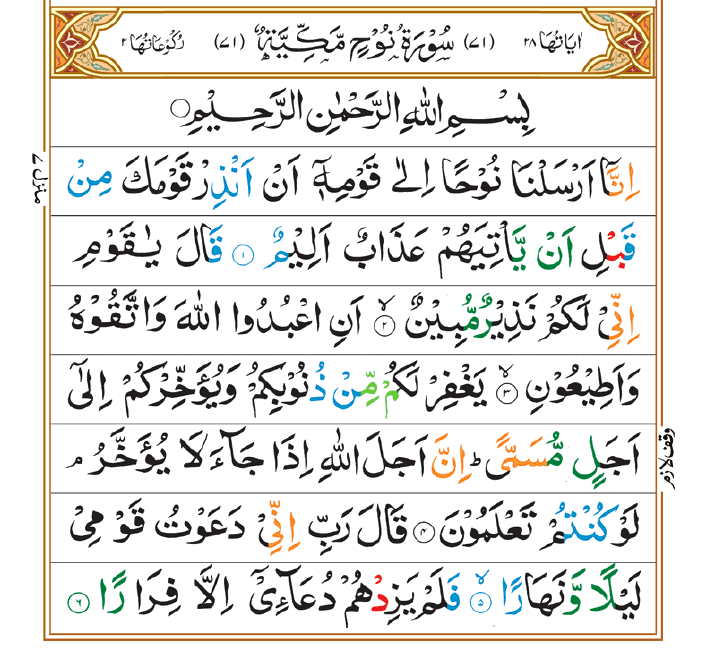 اٰيَاتُهَا ٢٨ (٧١) سُوْرَةُ نُوْحٍ مَّكِّيَّةٌ (٧١) رُكُوْعَاتُهَا ٢
بِسْمِ اللّٰهِ الرَّحْمٰنِ الرَّحِيْمِ
اِنَّاۤ اَرْسَلْنَا نُوْحًا اِلٰى قَوْمِهٖۤ اَنْ اَنْذِرْ قَوْمَكَ مِنْ
منزل ٧
قَبْلِ اَنْ يَّاْتِيَهُمْ عَذَابٌ اَلِيْمٌ ۝١ قَالَ يٰقَوْمِ
اِنِّيْ لَكُمْ نَذِيْرٌ مُّبِيْنٌ ۝٢ۙ اَنِ اعْبُدُوا اللّٰهَ وَاتَّقُوْهُ
وَاَطِيْعُوْنِ ۝٣ۙ يَغْفِرْ لَكُمْ مِّنْ ذُنُوْبِكُمْ وَيُؤَخِّرْكُمْ اِلٰۤى
اَجَلٍ مُّسَمًّى ؕ اِنَّ اَجَلَ اللّٰهِ اِذَا جَآءَ لَا يُؤَخَّرُ ۘ
وقف لازم
لَوْ كُنْتُمْ تَعْلَمُوْنَ ۝٤ قَالَ رَبِّ اِنِّيْ دَعَوْتُ قَوْمِيْ
لَيْلًا وَّنَهَارًا ۝٥ۙ فَلَمْ يَزِدْهُمْ دُعَآءِيْۤ اِلَّا فِرَارًا ۝٦